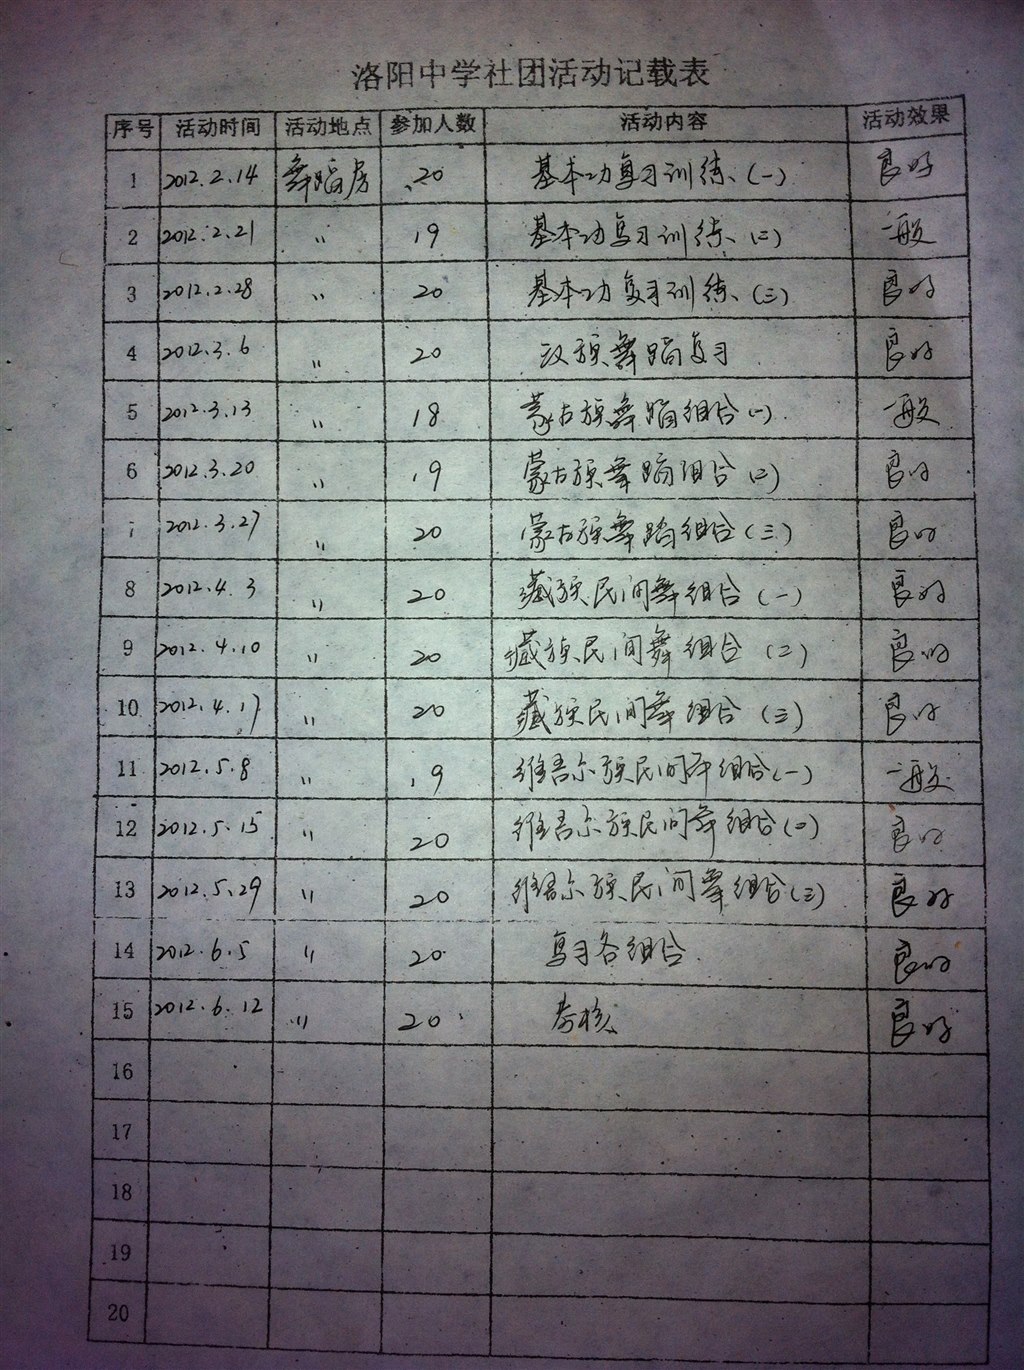 洛阳中学社团活动记载表
序号 活动时间 活动地点 参加人数 活动内容 活动效果
1 2012.2.14 舞蹈房 20 基本功复习训练(一) 良好
2 2012.2.21 〃 19 基本功复习训练(二) 一般
3 2012.2.28 〃 20 基本功复习训练(三) 良好
4 2012.3.6 〃 20 汉族舞蹈复习 良好
5 2012.3.13 〃 18 蒙古族舞蹈组合(一) 一般
6 2012.3.20 〃 19 蒙古族舞蹈组合(二) 良好
7 2012.3.27 〃 20 蒙古族舞蹈组合(三) 良好
8 2012.4.3 〃 20 藏族民间舞组合(一) 良好
9 2012.4.10 〃 20 藏族民间舞组合(二) 良好
10 2012.4.17 〃 20 藏族民间舞组合(三) 良好
11 2012.5.8 〃 19 维吾尔族民间舞组合(一) 一般
12 2012.5.15 〃 20 维吾尔族民间舞组合(二) 良好
13 2012.5.29 〃 20 维吾尔族民间舞组合(三) 良好
14 2012.6.5 〃 20 复习各组合 良好
15 2012.6.12 〃 20 考核 良好
16
17
18
19
20